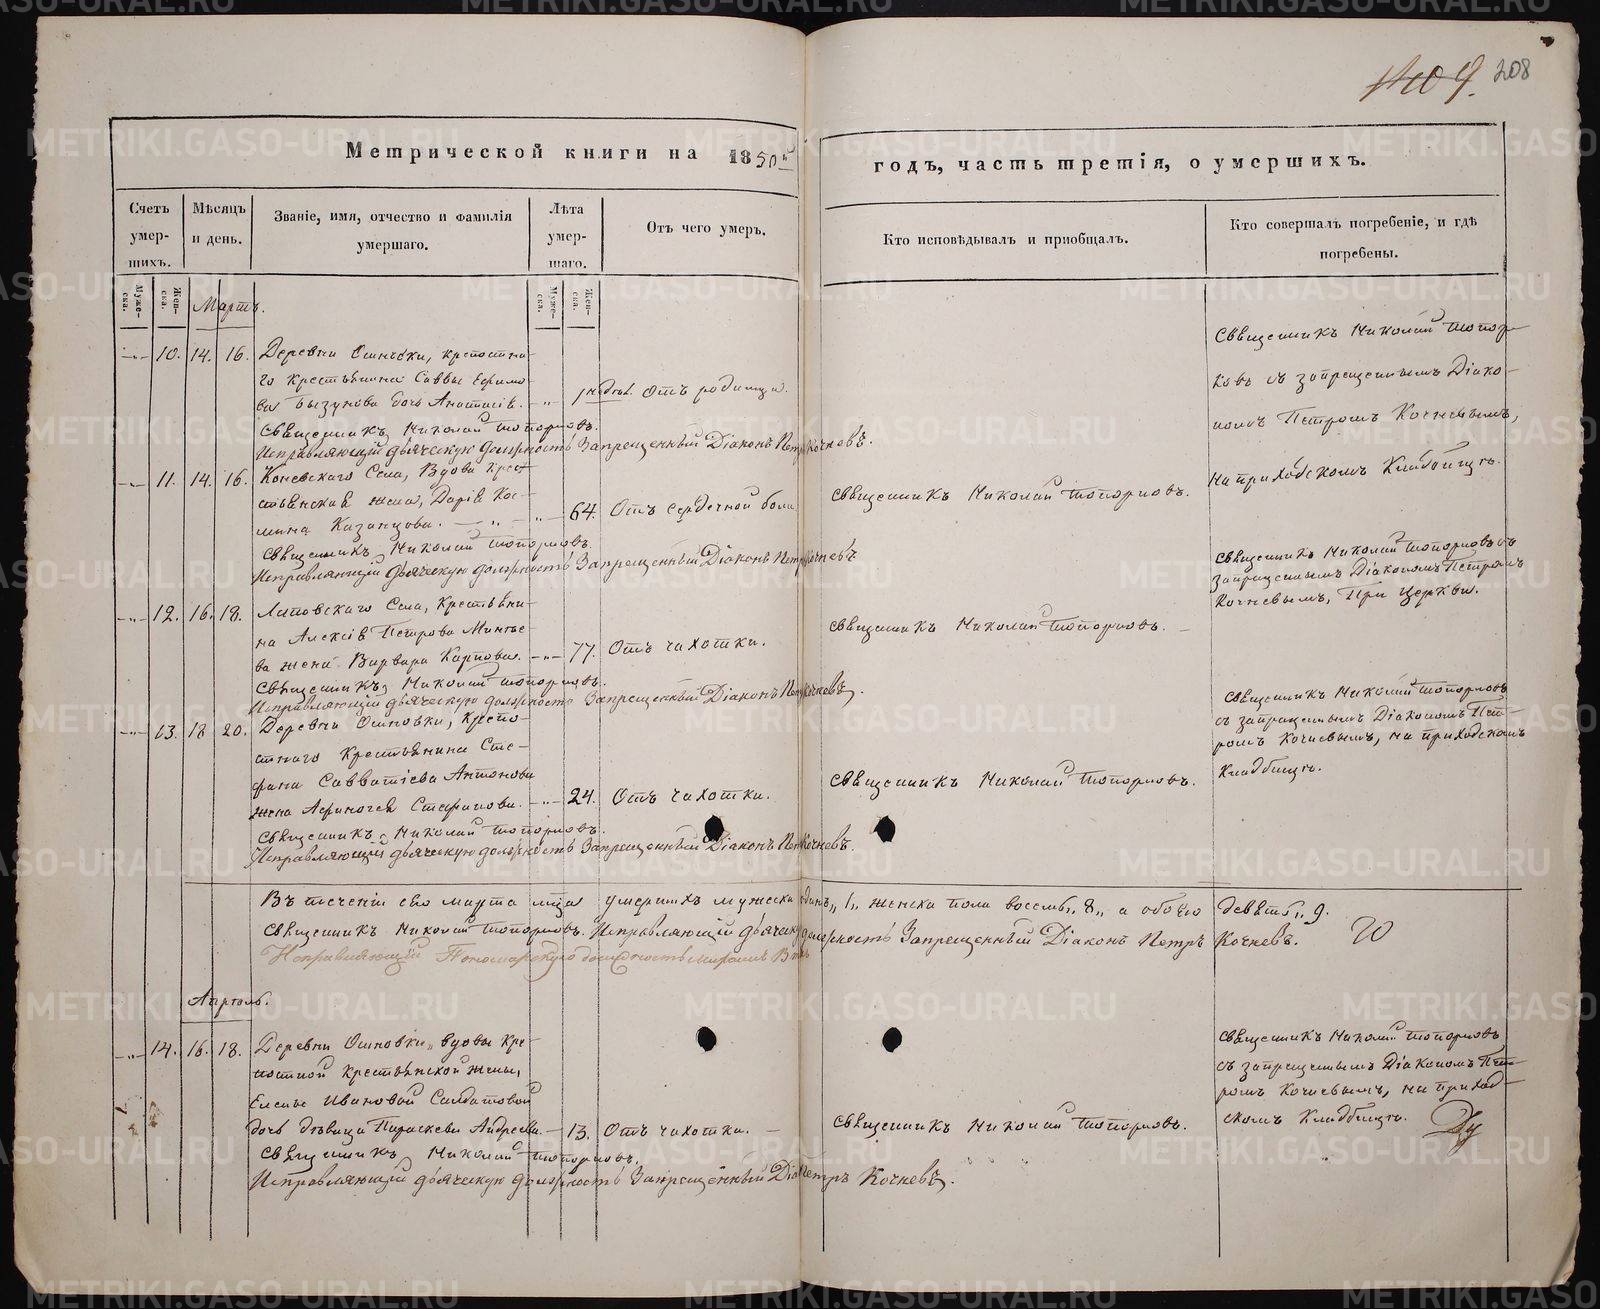 208
409.
Метрической книги на 1850й
годъ, часть третія, о умершихъ.
Счетъ умер-шихъ.
Мѣсяцъ и день.
Званіе, имя, отчество и фамилія умершаго.
Лѣта умер-шаго.
Отъ чего умеръ.
Кто исповѣдывалъ и пріобщалъ.
Кто совершалъ погребеніе, и гдѣ погребены.
Муже-ска.
Жен-ска.
Муже-ска.
Жен-ска.
Мартъ.
10. 14. 16. Деревни крепостна-
го крестьянина Саввы Ефимо-
ва Бызунова дочь Анастасія. 1 недѣл. Отъ родимца.
Священникъ Николай Топорковъ.
Исправляющій дьяческую должность Запрещенный Діаконъ Петръ Кочневъ.
Священникъ Николай Топор-
ковъ съ запрещеннымъ Діако-
номъ Петромъ Кочневымъ,
на приходскомъ Кладбищѣ.
11. 14. 16. Коневскаго Села, Вдова Крес-
тьянская жена, Дарія Кос-
мина Казанцова. 64. Отъ сердечной боли
Священникъ Николай Топорковъ.
Священникъ Николай Топорковъ
Исправляющій дьяческую должность Запрещенный Діаконъ Петръ Кочневъ
Священникъ Николай Топорковъ съ
запрещеннымъ Діакономъ Петромъ
Кочневымъ, При Церкви.
12. 16. 18. Липовскаго Села, Крестьяни-
на Алексія Петрова Минѣе-
ва жена Варвара Карпова. 77. Отъ чахотки.
Священникъ Николай Топорковъ.
Священникъ Николай Топорковъ.
Исправляющій дьяческую должность Запрещенный Діаконъ Петръ Кочневъ.
Священникъ Николай Топорковъ
съ запрещеннымъ Діакономъ Пет-
ромъ Кочневымъ, на приходскомъ
Кладбищѣ.
13. 18 20. Деревни Ошновки, крепо-
стнаго Крестьянина Сте-
фана Савватіева Антонова
жена Стефанова. 24. Отъ чахотки.
Священникъ Николай Топорковъ.
Священникъ Николай Топорковъ.
Исправляющій дьяческую должность Запрещенный Діаконъ Петръ Кочневъ.
Въ теченіи сего марта мѣсяца умершихъ мужеска одинъ, 1, женска пола восемь, 8, а обоего девять, 9.
Священникъ Николай Топорковъ. Исправляющій дьяческую должность Запрещенный Діаконъ Петръ Кочневъ.
Исправляющій Пономарскую должность
Апрѣль.
14. 16. 18. Деревни Ошновки, вдовы кре-
постной Крестьянской жены,
Елены Ивановой Салдатовой
дочь дѣвица Параскева Андреева. 13. Отъ чахотки.
Священникъ Николай Топорковъ.
Священникъ Николай Топорковъ.
Исправляющій дьяческую должность Запрещенный Діаконъ Петръ Кочневъ.
Священникъ Николай Топорковъ
съ запрещеннымъ Діакономъ Пет-
ромъ Кочневымъ, на приход-
скомъ Кладбищѣ.
METRIKI.GASO-URAL.RU